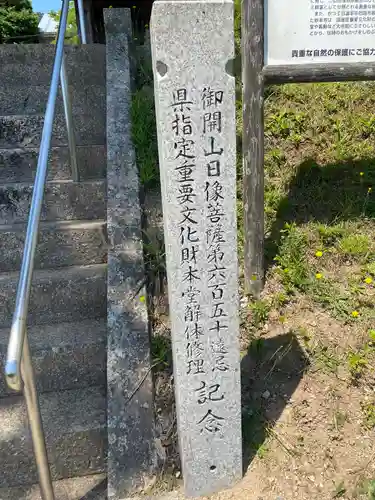 御開山日像菩薩第六百五十遠忌
県指定重要文化財本堂解体修理
記念
貴重な自然の保護にご協力